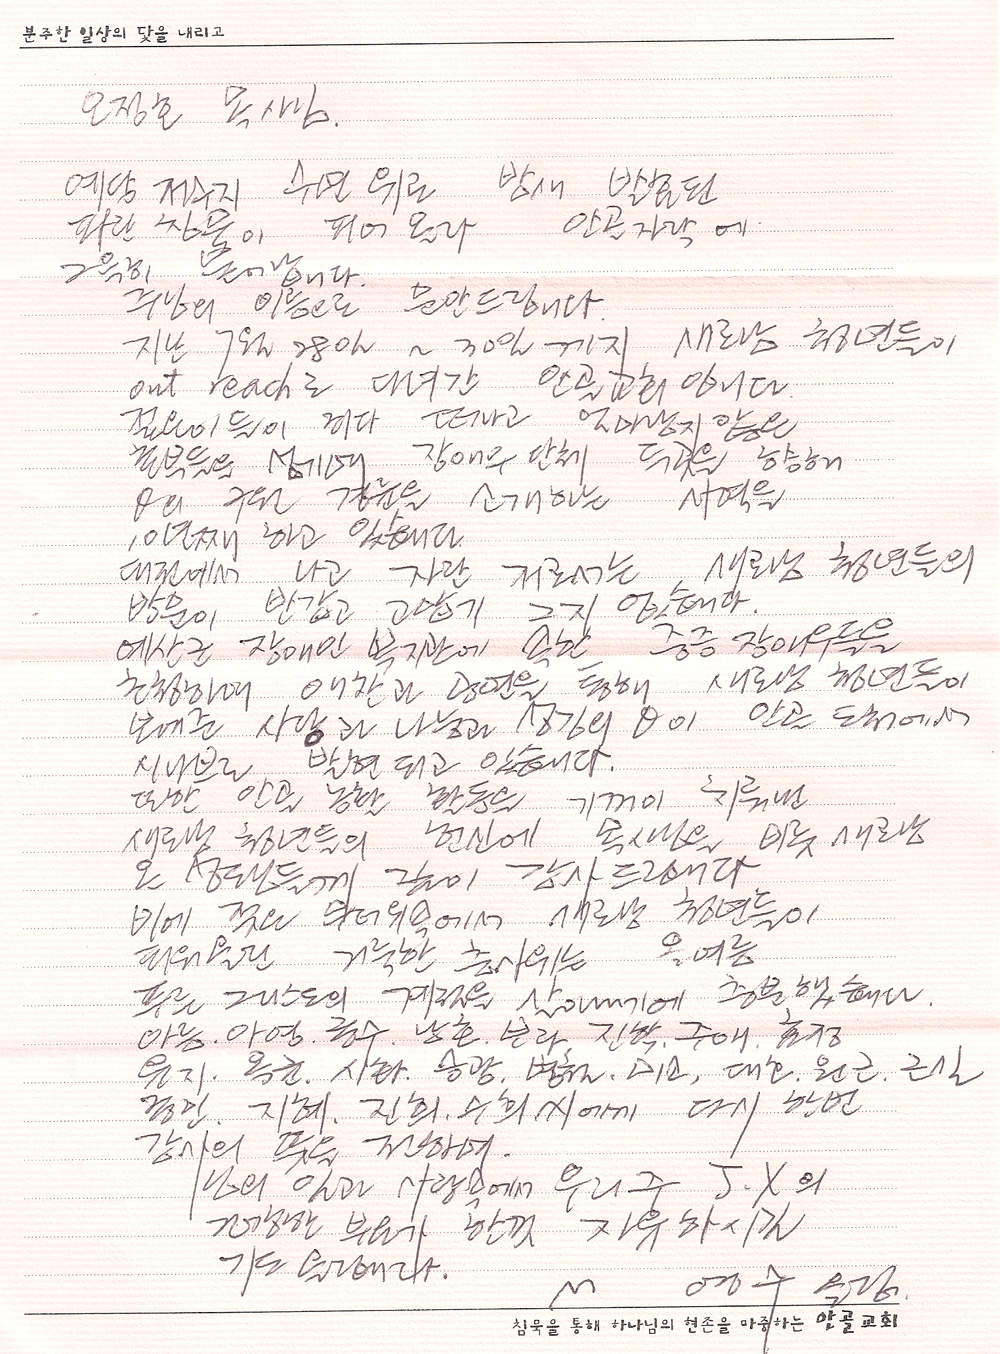 분주한 일상의 닻을 내리고
오정호 목사님.
예당 저수지 수면 위로 밤새 발효된
파란 창물이 피어 올라 안골자락에
그윽히
주님의 이름으로 문안드립니다.
지난 7월 28일 ~ 30일까지 새로남 청년들이
out reach로 다녀간 안골교회 입니다.
젊은이들이 떠나고 얼마남지 않은
촌부들을 섬기며 장애우 단체 특곳을 향해
구원 경륜을 소개하는 사역을
10년째 하고 있습니다.
대전에서 나고 자란 저로서는 새로남 청년들의
방문이 반갑고 고맙기 그지 없습니다.
예산군 장애인 복지관에 속한 중증 장애우들을
초청하여 애찬과 공연을 통해 새로남 청년들이
보여준 사랑과 나눔과 섬김의 이 안골 도처에서
시나브로 발현되고 있습니다.
또한 안골 농활 활동을 기꺼이 치뤄낸
새로남 청년들의 헌신에 목사님을 비롯 새로남
온 성도님들께 깊이 감사드립니다
비에 젖은 무더위속에서 새로남 청년들이
피워올린 거룩한 춤사위는 올여름
푸른 그리스도의 계절을 살아내기에 충분했습니다.
아롱. 아영. 용수. 남훈. 보라. 진학. 주애. 효정
유지. 옥권. 시화. 승광. 범철. 미소, 대호. 원근. 은실
경민. 지혜. 진희. 수희씨에게 다시 한번
감사의 뜻을 전하며.
님의 일과 사랑속에서 우리주 J.X의
거룩한 부요가 한껏 자유하시길
기도 올립니다.
예수 올림.
침묵을 통해 하나님의 현존을 마중하는 안골교회